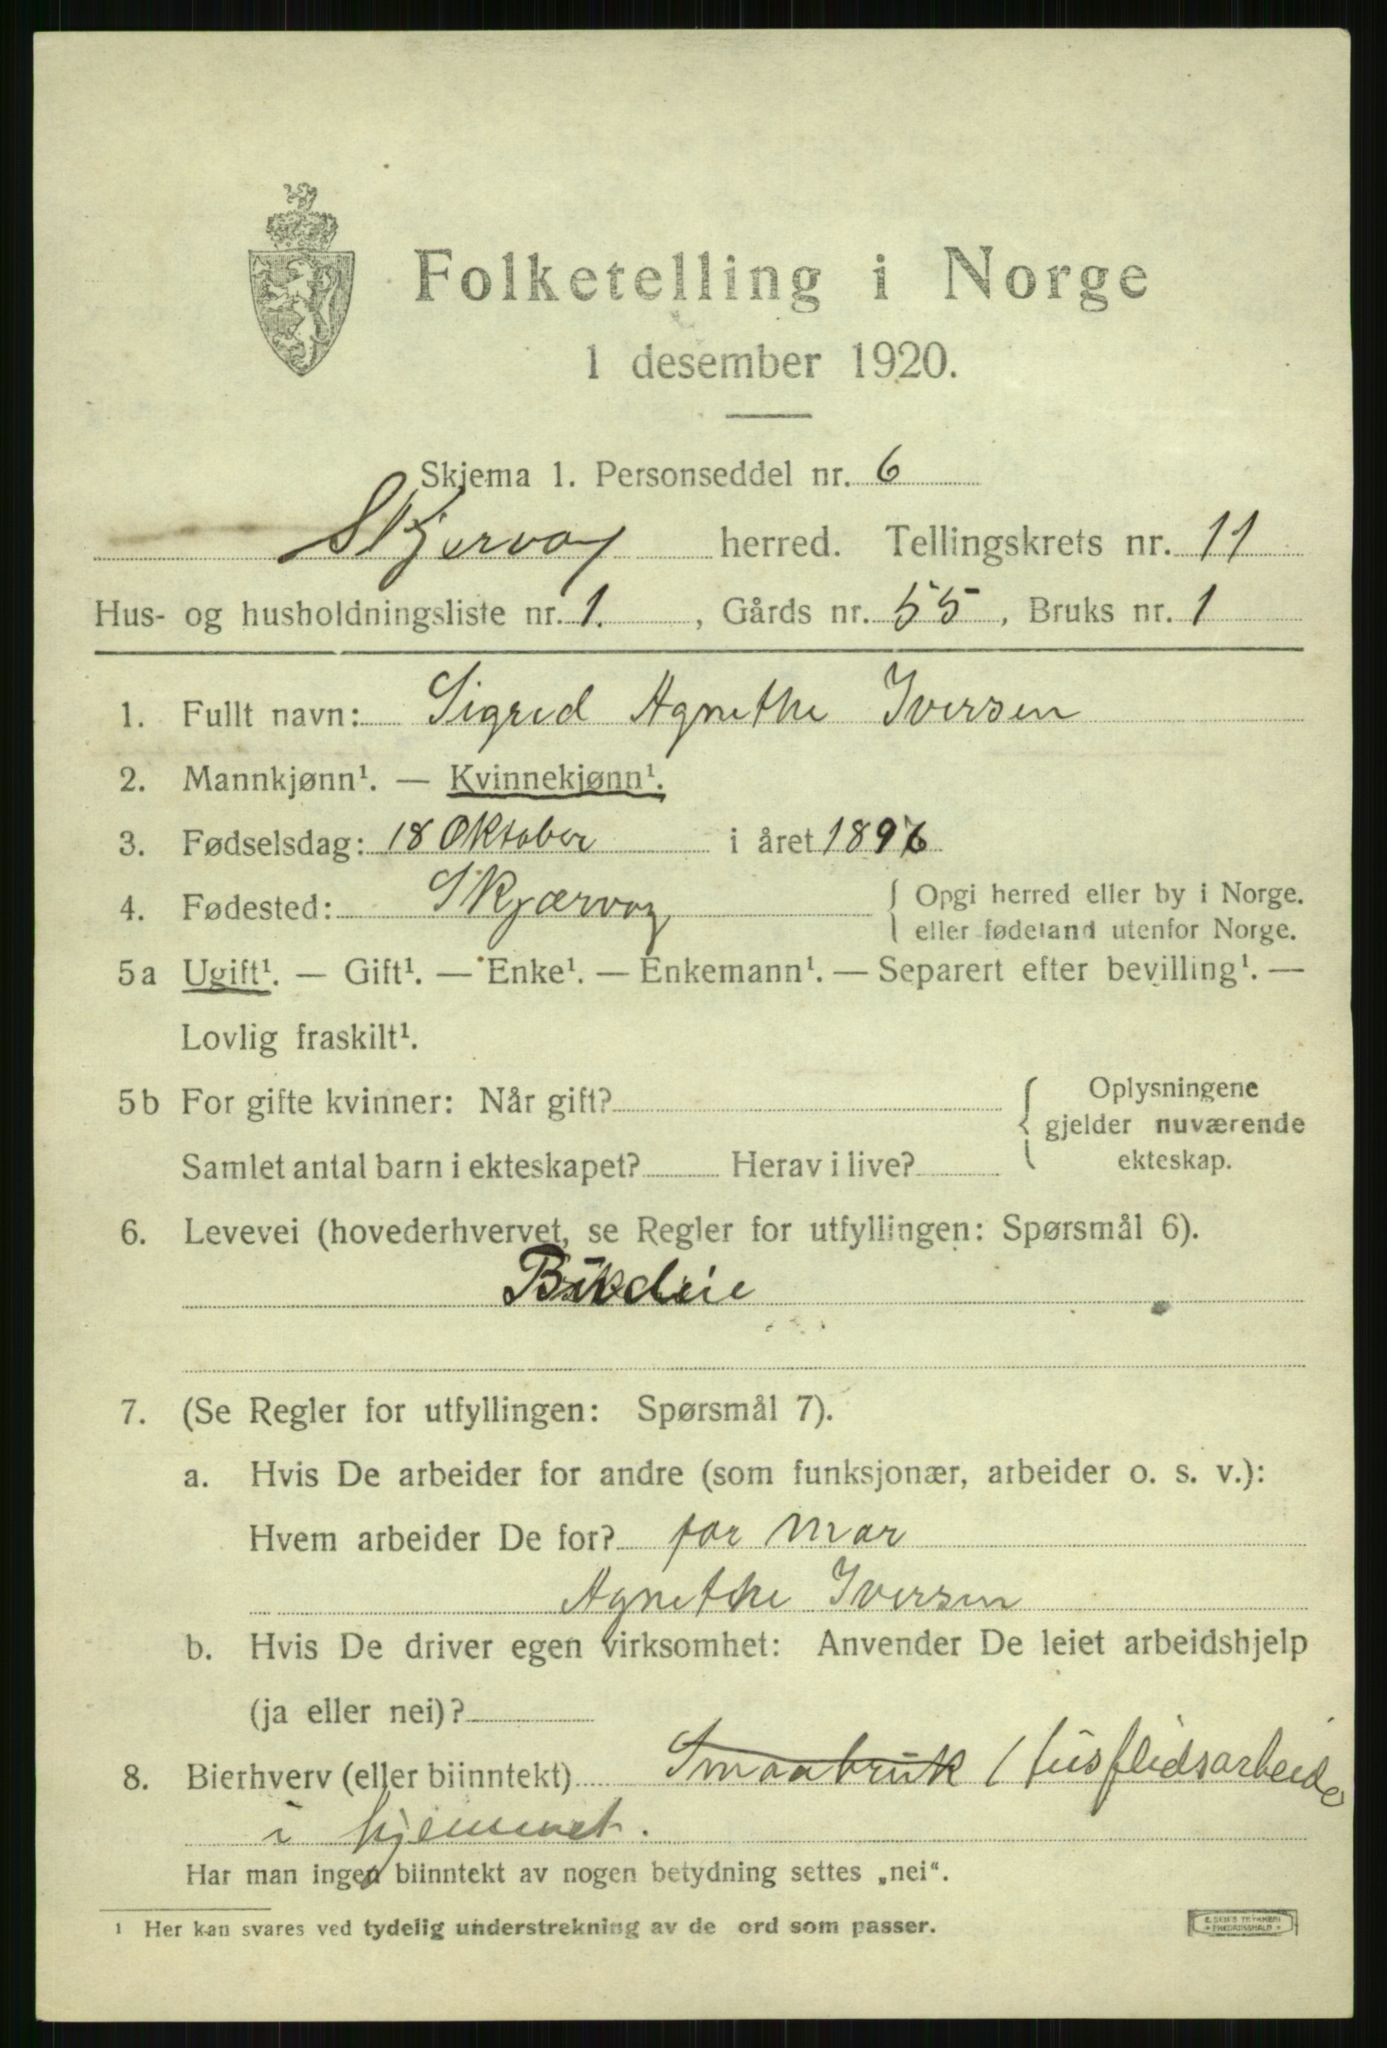 Folketelling i Norge
1 desember 1920.
Skjema 1. Personseddel nr. 6
Skjervøy herred. Tellingskrets nr. 11
Hus- og husholdningsliste nr. 1. , Gårds nr. 55, Bruks nr. 1
1. Fullt navn: Sigrid Agnethe Iversen
2. Mannkjønn¹. — Kvinnekjønn¹.
3. Fødselsdag: 18 Oktober i året 1896
4. Fødested: Skjærvøy { Opgi herred eller by i Norge.
eller fødeland utenfor Norge.
5a Ugift¹. — Gift¹. — Enke¹. — Enkemann¹. — Separert efter bevilling¹. —
Lovlig fraskilt¹.
5b For gifte kvinner: Når gift? { Oplysningene
gjelder nuværende
Samlet antal barn i ekteskapet? Herav i live? ekteskap.
6. Levevei (hovederhvervet, se Regler for utfyllingen: Spørsmål 6).
7. (Se Regler for utfyllingen: Spørsmål 7).
a. Hvis De arbeider for andre (som funksjonær, arbeider o. s. v.):
Hvem arbeider De for? for mor
Agnethe Iversen
b. Hvis De driver egen virksomhet: Anvender De leiet arbeidshjelp
(ja eller nei)?
8. Bierhverv (eller biinntekt) Smaabruk Husflidsarbeide
i hjemmet.
Har man ingen biinntekt av nogen betydning settes „nei“.
¹ Her kan svares ved tydelig understrekning av de ord som passer.